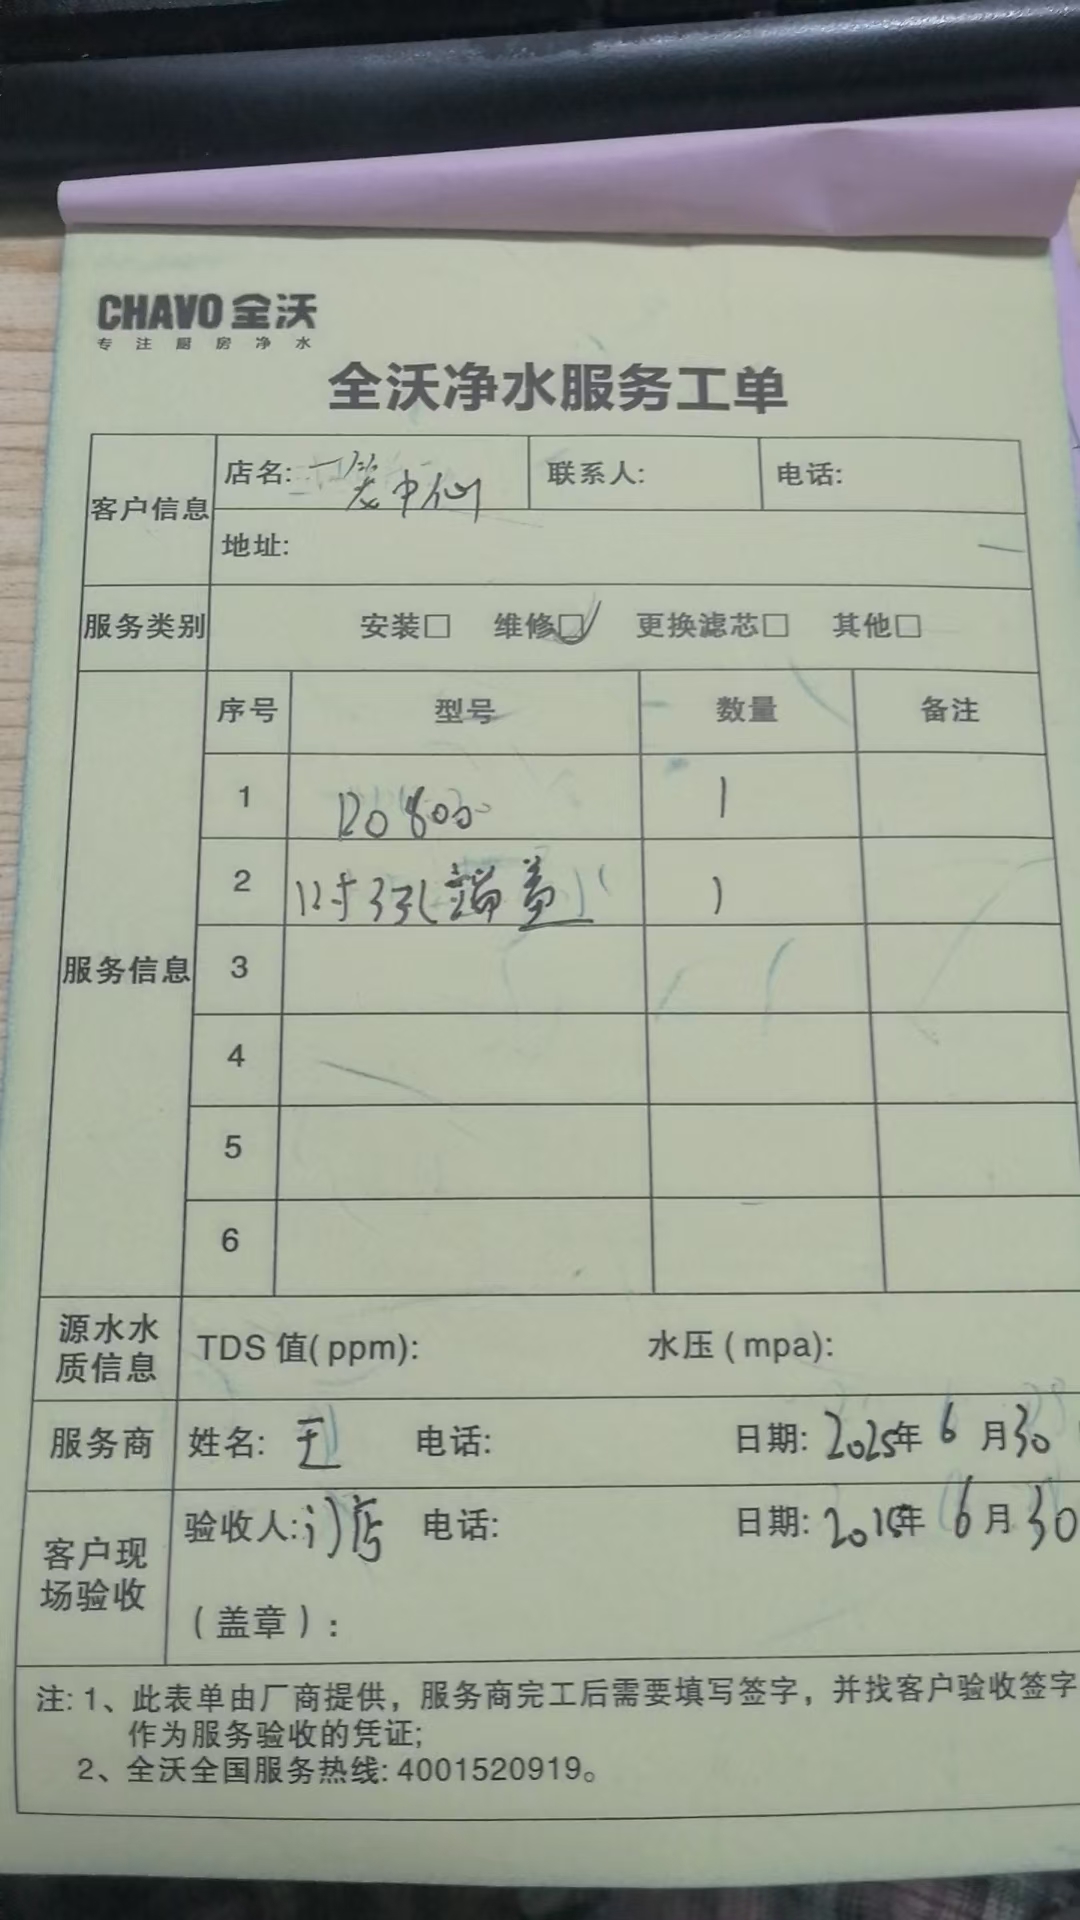 CHAVO 全沃
专注厨房净水
全沃净水服务工单
客户信息
店名: 一笼中仙 联系人: 电话:
地址:
服务类别 安装□ 维修☑ 更换滤芯□ 其他□
服务信息
序号 型号 数量 备注
1 RO 800 1
2 12寸3孔端盖 1
3
4
5
6
源水水质信息 TDS 值( ppm): 水压 ( mpa):
服务商 姓名: 王 电话: 日期: 2025年 6 月30
客户现场验收 验收人: 门店 电话: 日期: 2025年 6 月30
( 盖章 ) :
注: 1、此表单由厂商提供，服务商完工后需要填写签字，并找客户验收签字
作为服务验收的凭证;
2、全沃全国服务热线: 4001520919。